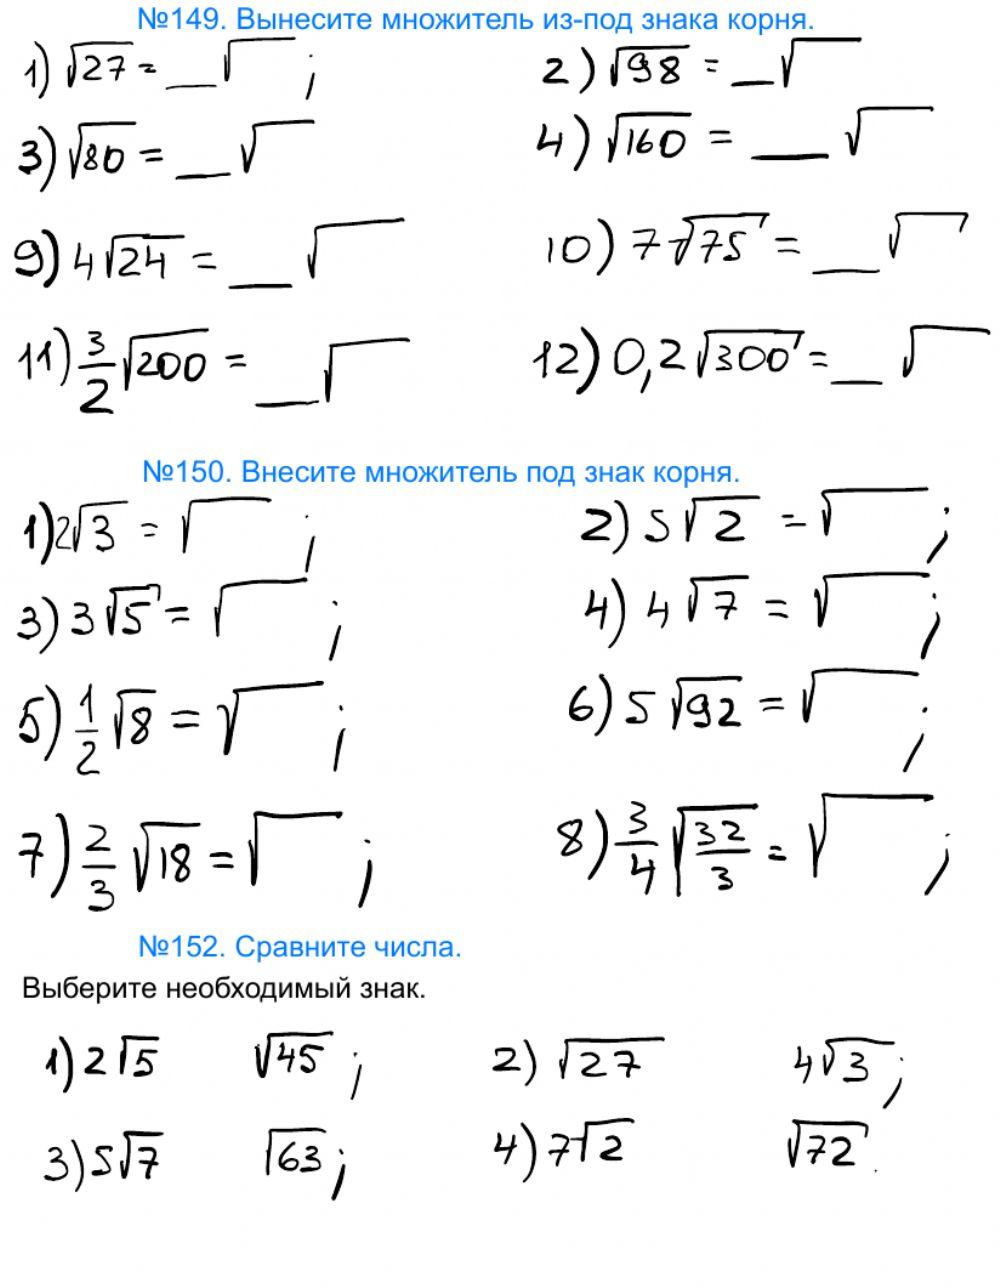 №149. Вынесите множитель из-под знака корня.
1) √27 = __√ ; 2) √98 = __√
3) √80 = __√ 4) √160 = __√
9) 4√24 = __√ 10) 7√75 = __√
11) 3/2 √200 = __√ 12) 0,2√300 = __√
№150. Внесите множитель под знак корня.
1) 2√3 = √ ; 2) 5√2 = √ ;
3) 3√5 = √ ; 4) 4√7 = √ ;
5) 1/2 √8 = √ ; 6) 5√92 = √ ;
7) 2/3 √18 = √ ; 8) 3/4 √32/3 = √ ;
№152. Сравните числа.
Выберите необходимый знак.
1) 2√5 √45 ; 2) √27 4√3 ;
3) 5√7 √63 ; 4) 7√2 √72 .